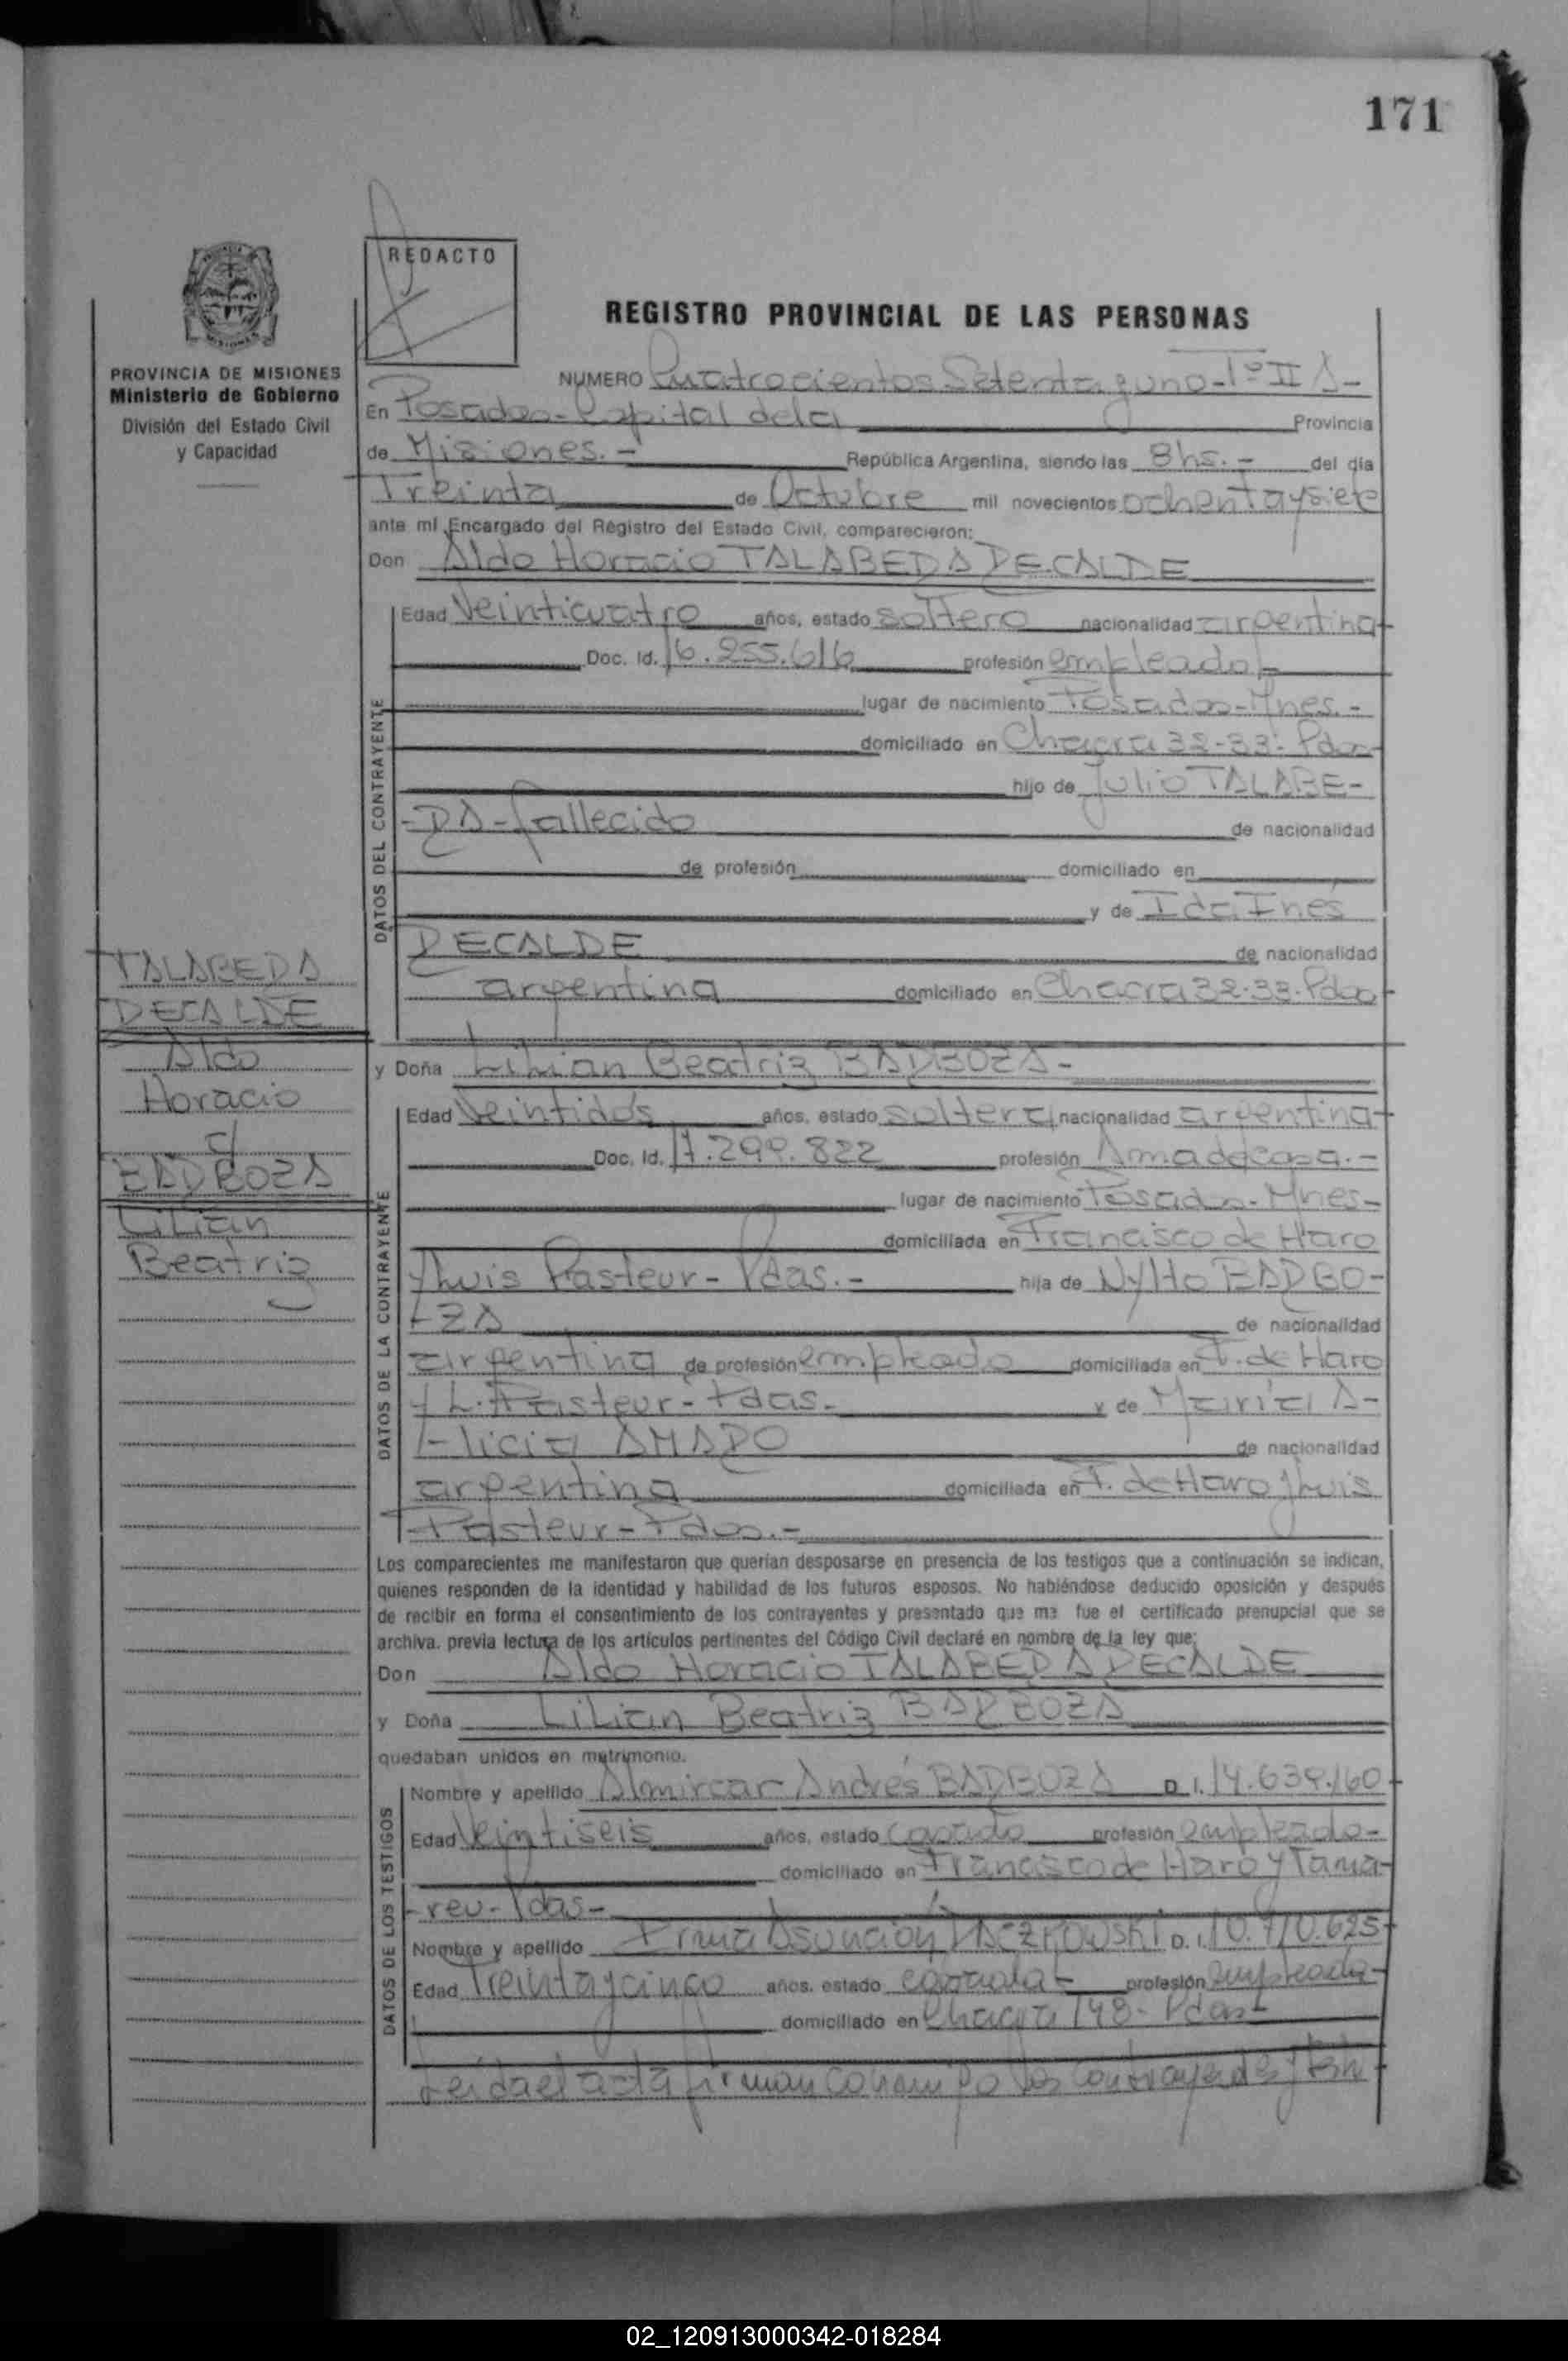 171
REDACTO
REGISTRO PROVINCIAL DE LAS PERSONAS
PROVINCIA DE MISIONES
Ministerio de Gobierno
División del Estado Civil
y Capacidad
NUMERO Cuatrocientos Setenta y uno - 1º II A -
En Posadas - Capital de la Provincia
de Misiones. - República Argentina, siendo las 8 hs. - del día
Treinta de Octubre mil novecientos ochenta y siete
ante mí Encargado del Registro del Estado Civil, comparecieron:
Don Aldo Horacio TALABERA RECALDE
Edad Veinticuatro años, estado soltero nacionalidad argentina
Doc. Id. 16.255.616 profesión empleado -
lugar de nacimiento Posadas - Mnes. -
domiciliado en Chacra 32-33. Pdas
hijo de Julio TALABE-
-RA - fallecido de nacionalidad
de profesión domiciliado en
y de Ida Inés
RECALDE de nacionalidad
argentina domiciliado en Chacra 32-33. Pdas
DATOS DEL CONTRAYENTE
TALABERA
RECALDE
Aldo
Horacio
c/
BARBOZA
Lilian
Beatriz
y Doña Lilian Beatriz BARBOZA -
Edad Veintidós años, estado soltera nacionalidad argentina
Doc. Id. 17.299.822 profesión Ama de casa. -
lugar de nacimiento Posadas - Mnes -
domiciliada en Francisco de Haro
y Luis Pasteur - Pdas. - hija de Nylto BARBO-
-ZA de nacionalidad
argentina de profesión empleado domiciliada en F. de Haro
y L. Pasteur - Pdas. - y de María A-
-licia AMARO de nacionalidad
argentina domiciliada en F. de Haro y Luis
Pasteur - Pdas. -
DATOS DE LA CONTRAYENTE
Los comparecientes me manifestaron que querían desposarse en presencia de los testigos que a continuación se indican,
quienes responden de la identidad y habilidad de los futuros esposos. No habiéndose deducido oposición y después
de recibir en forma el consentimiento de los contrayentes y presentado que me fue el certificado prenupcial que se
archiva. previa lectura de los artículos pertinentes del Código Civil declaré en nombre de la ley que:
Don Aldo Horacio TALABERA RECALDE
y Doña Lilian Beatriz BARBOZA
quedaban unidos en matrimonio.
Nombre y apellido Almircar Andrés BARBOZA D. I. 14.639.160
Edad Veintiseis años, estado casado profesión empleado -
domiciliado en Francisco de Haro y Tama-
- reu - Pdas -
Nombre y apellido Irma Asunción D. I. 10.710.625
Edad Treinta y cinco años. estado casada - profesión empleada -
domiciliado en Chacra 148 - Pdas -
DATOS DE LOS TESTIGOS
Leída el acta firman conmigo los contrayentes y tes
02_120913000342-018284